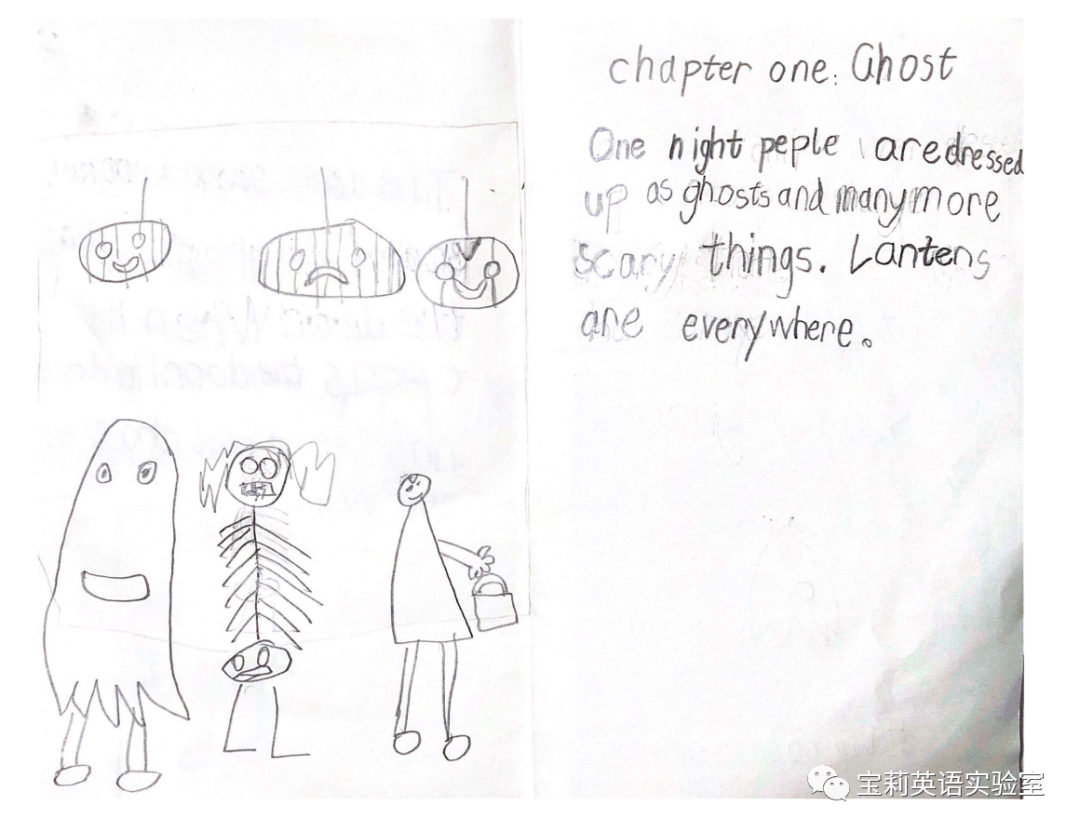 chapter one: Ghost
One night peple are dressed
up as ghosts and many more
scary things. Lantens
are everywhere.
宝莉英语实验室